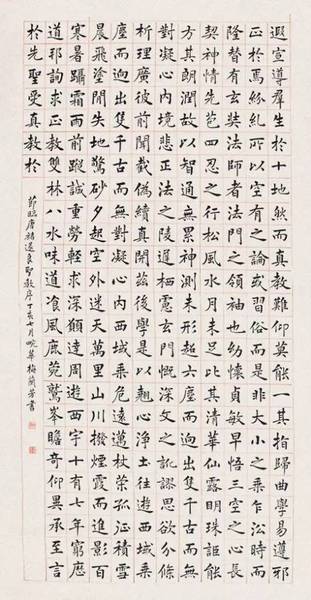 遐宣導群生於十地然而真教難仰莫能一其指歸曲學易遵邪
正於焉紛糺所以空有之論或習俗而是非大小之乘乍沿時而
隆替有玄奘法師者法門之領袖也幼懷貞敏早悟三空之心長
契神情先苞四忍之行松風水月未足比其清華仙露明珠詎能
方其朗潤故以智通無累神測未形超六塵而迥出隻千古而無
對凝心內境悲正法之陵遲栖慮玄門慨深文之訛謬思欲分條
析理廣彼前聞截偽續真開茲後學是以翹心淨土往遊西域乘
塵而迥出隻千古而無對凝心內西域乘危遠邁杖策孤征積雪
晨飛塗閒失地驚砂夕起空外迷天萬里山川撥煙霞而進影百
寒暑躡霜雨前蹤誠重勞輕求深願達周遊西宇十有七年窮
道邦詢求正教雙林八水味道飡風鹿菀鷲峯瞻奇仰異承至言
於先聖受真教於
節臨唐褚遂良聖教序丁亥七月畹華梅蘭芳書